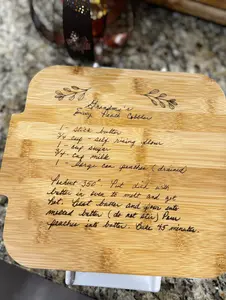 Grammy's
Easy Peach Cobbler
1 - stick butter
3/4 cup - self rising flour
1 - cup sugar
3/4 - cup milk
1 - large can peaches (drained)
Preheat 350° Put dish with
butter in oven to melt and get
hot. Beat batter and pour into
melted butter (do not stir) Pour
peaches into batter. Bake 45 minutes.